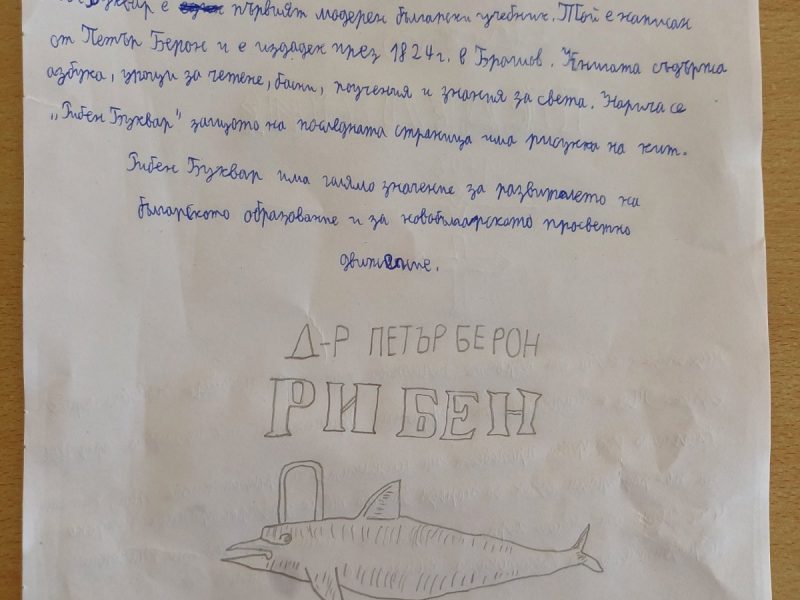 Буквар е първият модерен български учебник. Той е написан
от Петър Берон и е издаден през 1824г. в Брашов. Книгата съдържа
азбука, уроци за четене, басни, поучения и знания за света. Нарича се
„Рибен Буквар" защото на последната страница има рисунка на кит.
Рибен Буквар има голямо значение за развитието на
българското образование и за новобългарското просветно
движение.
Д-Р ПЕТЪР БЕРОН
РИБЕН